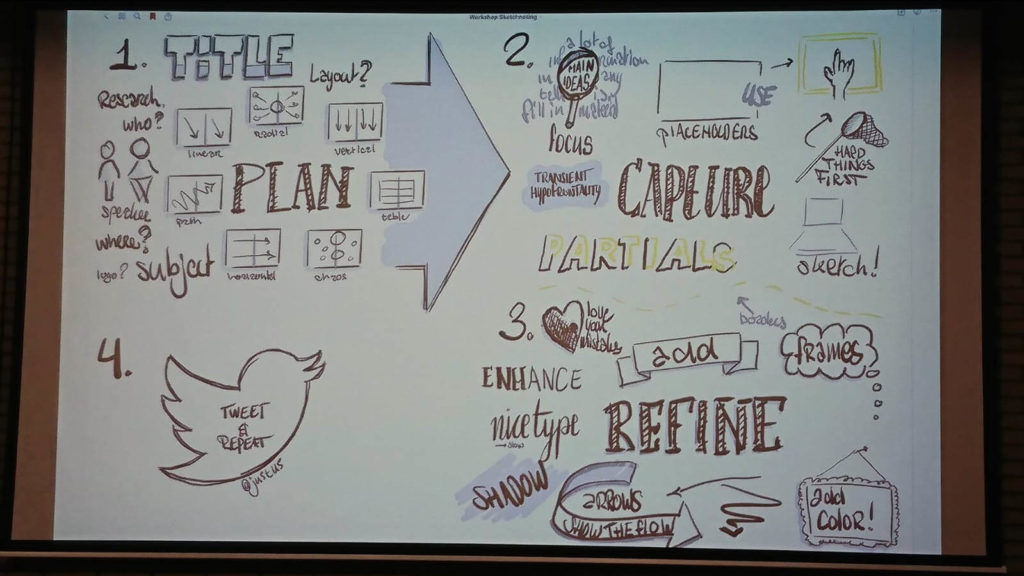 Workshop Sketchnoting
1. TITLE
Layout?
Research
who?
linear
radial
vertical
speaker
path
PLAN
table
where?
logo?
subject
horizontal
chaos
2.
a lot of
information
MAIN
IDEAS
fill in instead
FOCUS
PLACEHOLDERS
USE
HARD
THINGS
FIRST
TRANSIENT
HYPOFRONTALITY
CAPTURE
PARTIALS
sketch!
borders
3.
love
your
mistakes
add
frames
ENHANCE
nice type
slow
REFINE
SHADOW
ARROWS
SHOW THE FLOW
add
COLOR!
4.
TWEET
&
REPEAT
@justus